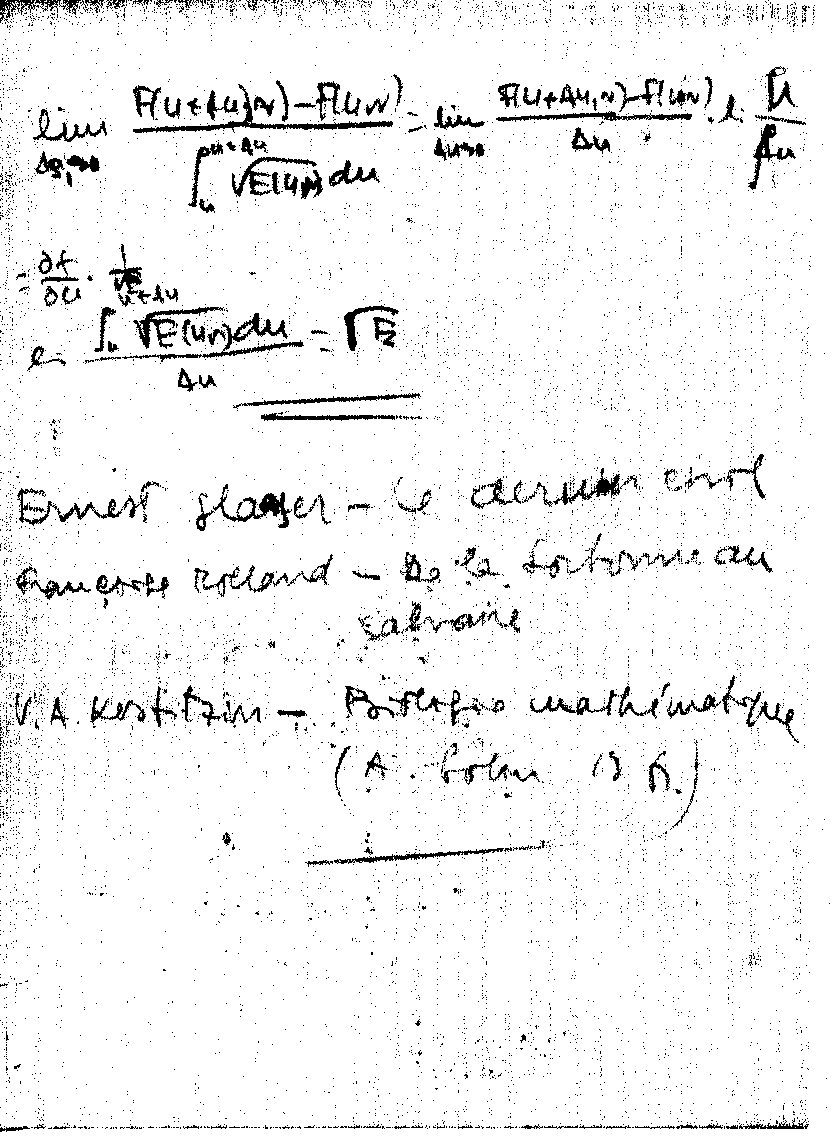 lim F(u+Δu, v) − F(u, v) / ∫_u^{u+Δu} √E(u, v) du = lim_{Δu→0} F(u+Δu, v) − F(u, v) / Δu · l.
= ∂f/∂u · 1/√E
∫_u^{u+Δu} √E(u, v) du / Δu = √E
Ernest Glaeser – Le dernier civil
Françoise Rolland – De la Sorbonne au
V.A. Kostitzin – Biologie mathématique
(A. Colin